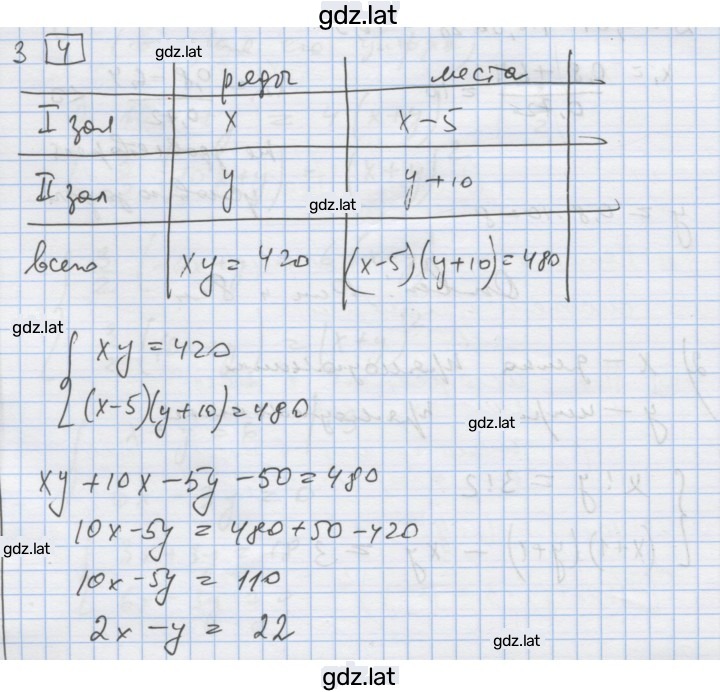 gdz.lat
3 4
gdz.lat
ряды места
I зал x x-5
II зал y y+10
gdz.lat
всего xy = 420 (x-5)(y+10)=480
gdz.lat
xy = 420
(x-5)(y+10)=480
gdz.lat
xy + 10x - 5y - 50 = 480
10x - 5y = 480 + 50 - 420
gdz.lat
10x - 5y = 110
2x - y = 22
gdz.lat
gdz.lat